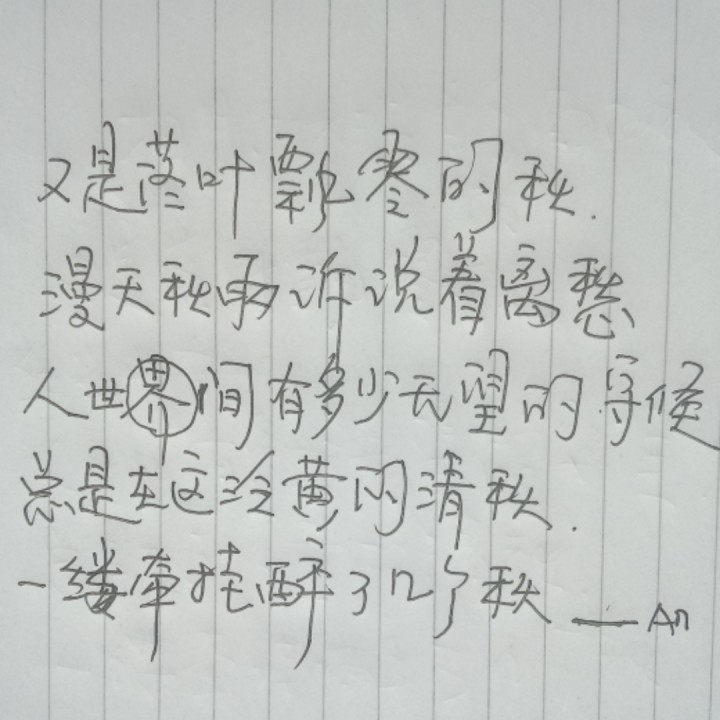 又是落叶飘零的秋.
漫天秋雨诉说着离愁
人世界间有多少无望的守候
总是在这泛黄的清秋.
一缕牵挂醉了几了秋 ——An